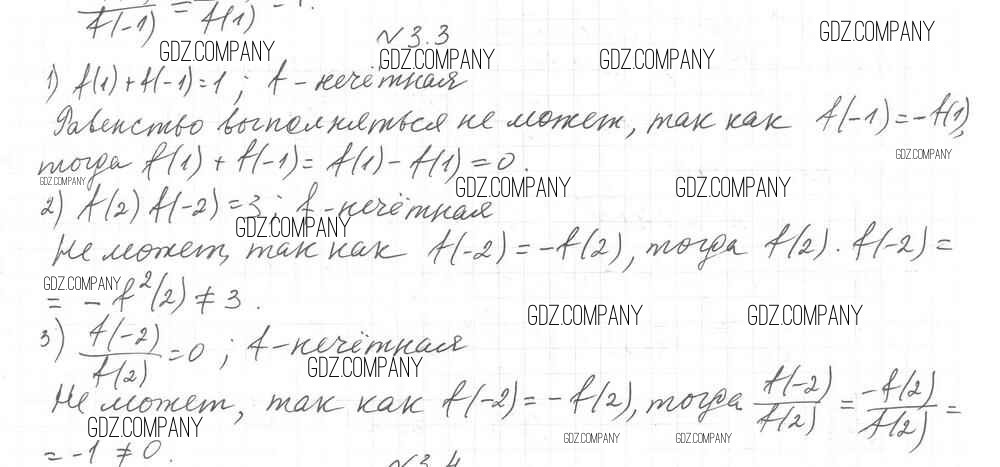 f(-1) = f(1) = -1.
GDZ.COMPANY
№3.3
GDZ.COMPANY GDZ.COMPANY GDZ.COMPANY
1) f(1)+f(-1)=1 ; f – нечётная
Равенство выполняться не может, так как f(-1)=-f(1),
тогда f(1) + f(-1)= f(1) - f(1) = 0.
GDZ.COMPANY
GDZ.COMPANY GDZ.COMPANY GDZ.COMPANY
2) f(2) f(-2) = 3 ; f – нечётная
GDZ.COMPANY
Не может, так как f(-2) = -f(2), тогда f(2) . f(-2) =
GDZ.COMPANY
= - f²(2) ≠ 3 .
GDZ.COMPANY GDZ.COMPANY
3) f(-2)/f(2) = 0 ; f – нечётная
GDZ.COMPANY
Не может, так как f(-2) = - f(2), тогда f(-2)/f(2) = -f(2)/f(2) =
GDZ.COMPANY GDZ.COMPANY GDZ.COMPANY
= -1 ≠ 0.
№3.4